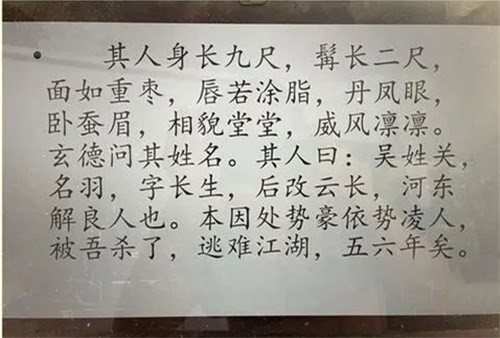 其人身长九尺，髯长二尺，
面如重枣，唇若涂脂，丹凤眼，
卧蚕眉，相貌堂堂，威风凛凛。
玄德问其姓名。其人曰：吴姓关，
名羽，字长生，后改云长，河东
解良人也。本因处势豪依势凌人，
被吾杀了，逃难江湖，五六年矣。